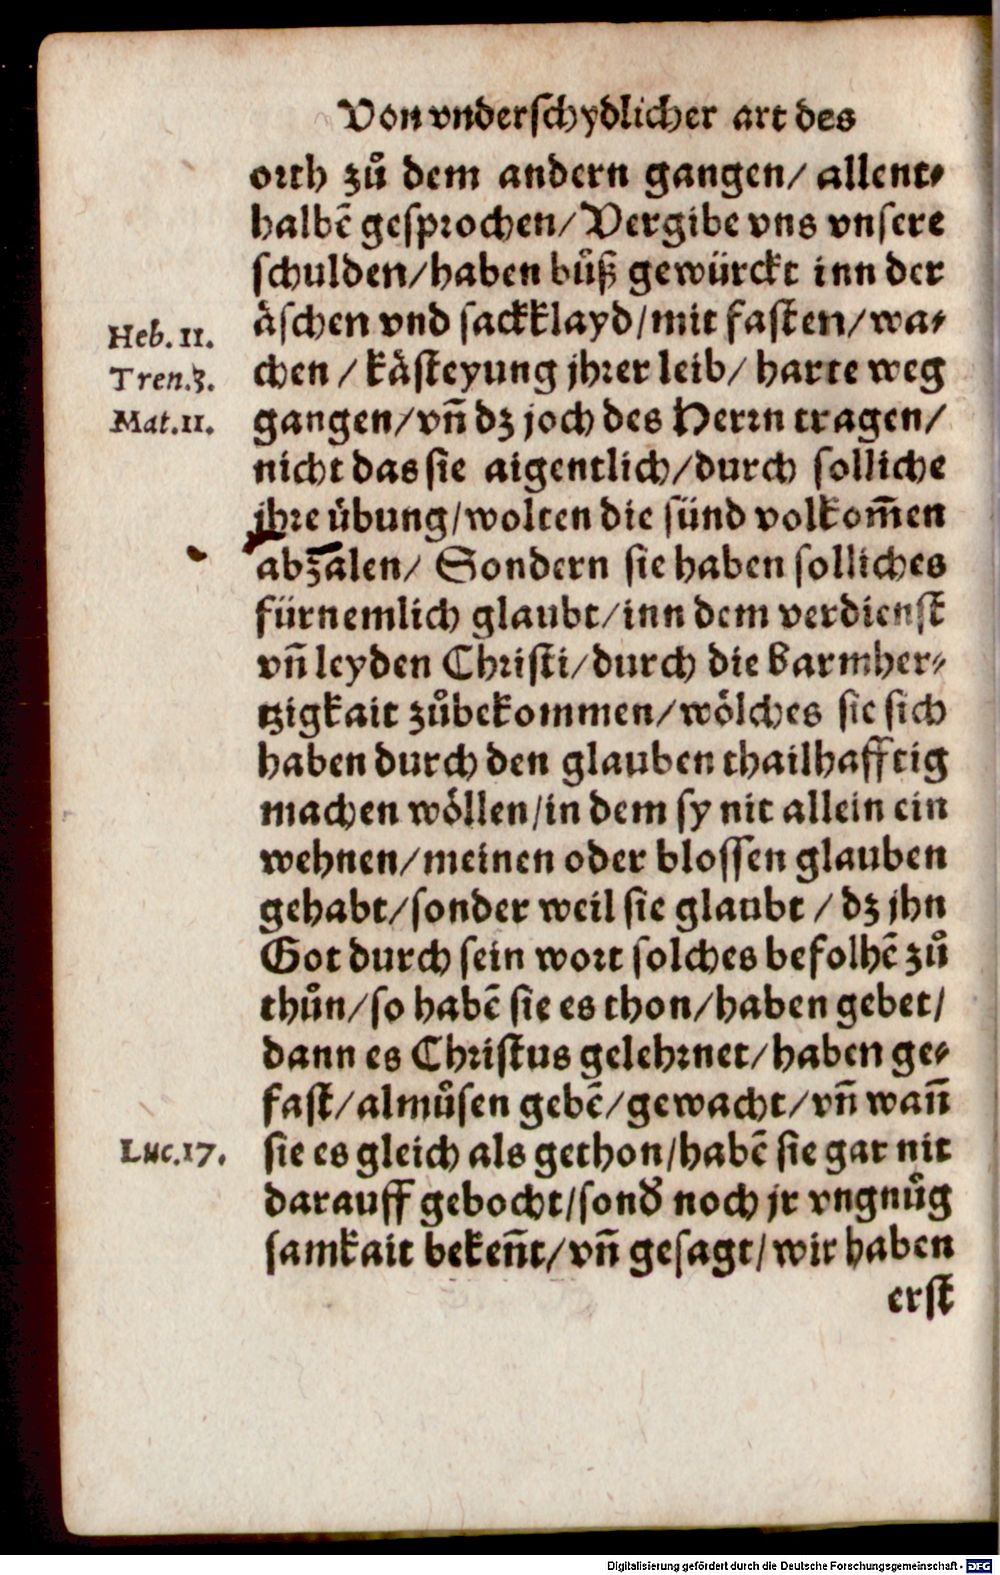 Von vnderschydlicher art des
orth zů dem andern gangen/ allent-
halbē gesprochen/ Vergibe vns vnsere
schulden/ haben bůß gewürckt inn der
äschen vnd sackklayd/ mit fasten/ wa-
Heb. 11.
chen / kästeyung jhrer leib/ harte weg
Tren. 3.
gangen/ vñ dz joch des Herrn tragen/
Mat. 11.
nicht das sie aigentlich/ durch solliche
jhre übung/ wolten die sünd volkom̄en
abzalen/ Sondern sie haben solliches
fürnemlich glaubt/ inn dem verdienst
vñ leyden Christi/ durch die barmher-
tzigkait zůbekommen/ wölches sie sich
haben durch den glauben thailhafftig
machen wöllen/ in dem sy nit allein ein
wehnen/ meinen oder blossen glauben
gehabt/ sonder weil sie glaubt / dz jhn
Got durch sein wort solches befolhē zů
thůn/ so habē sie es thon/ haben gebet/
dann es Christus gelehrnet/ haben ge-
fast/ almůsen gebē/ gewacht/ vñ wañ
Luc. 17.
sie es gleich als gethon/ habē sie gar nit
darauff gebocht/ sond̄ noch jr vngnůg
samkait bekeñt/ vñ gesagt/ wir haben
erst
Digitalisierung gefördert durch die Deutsche Forschungsgemeinschaft - DFG